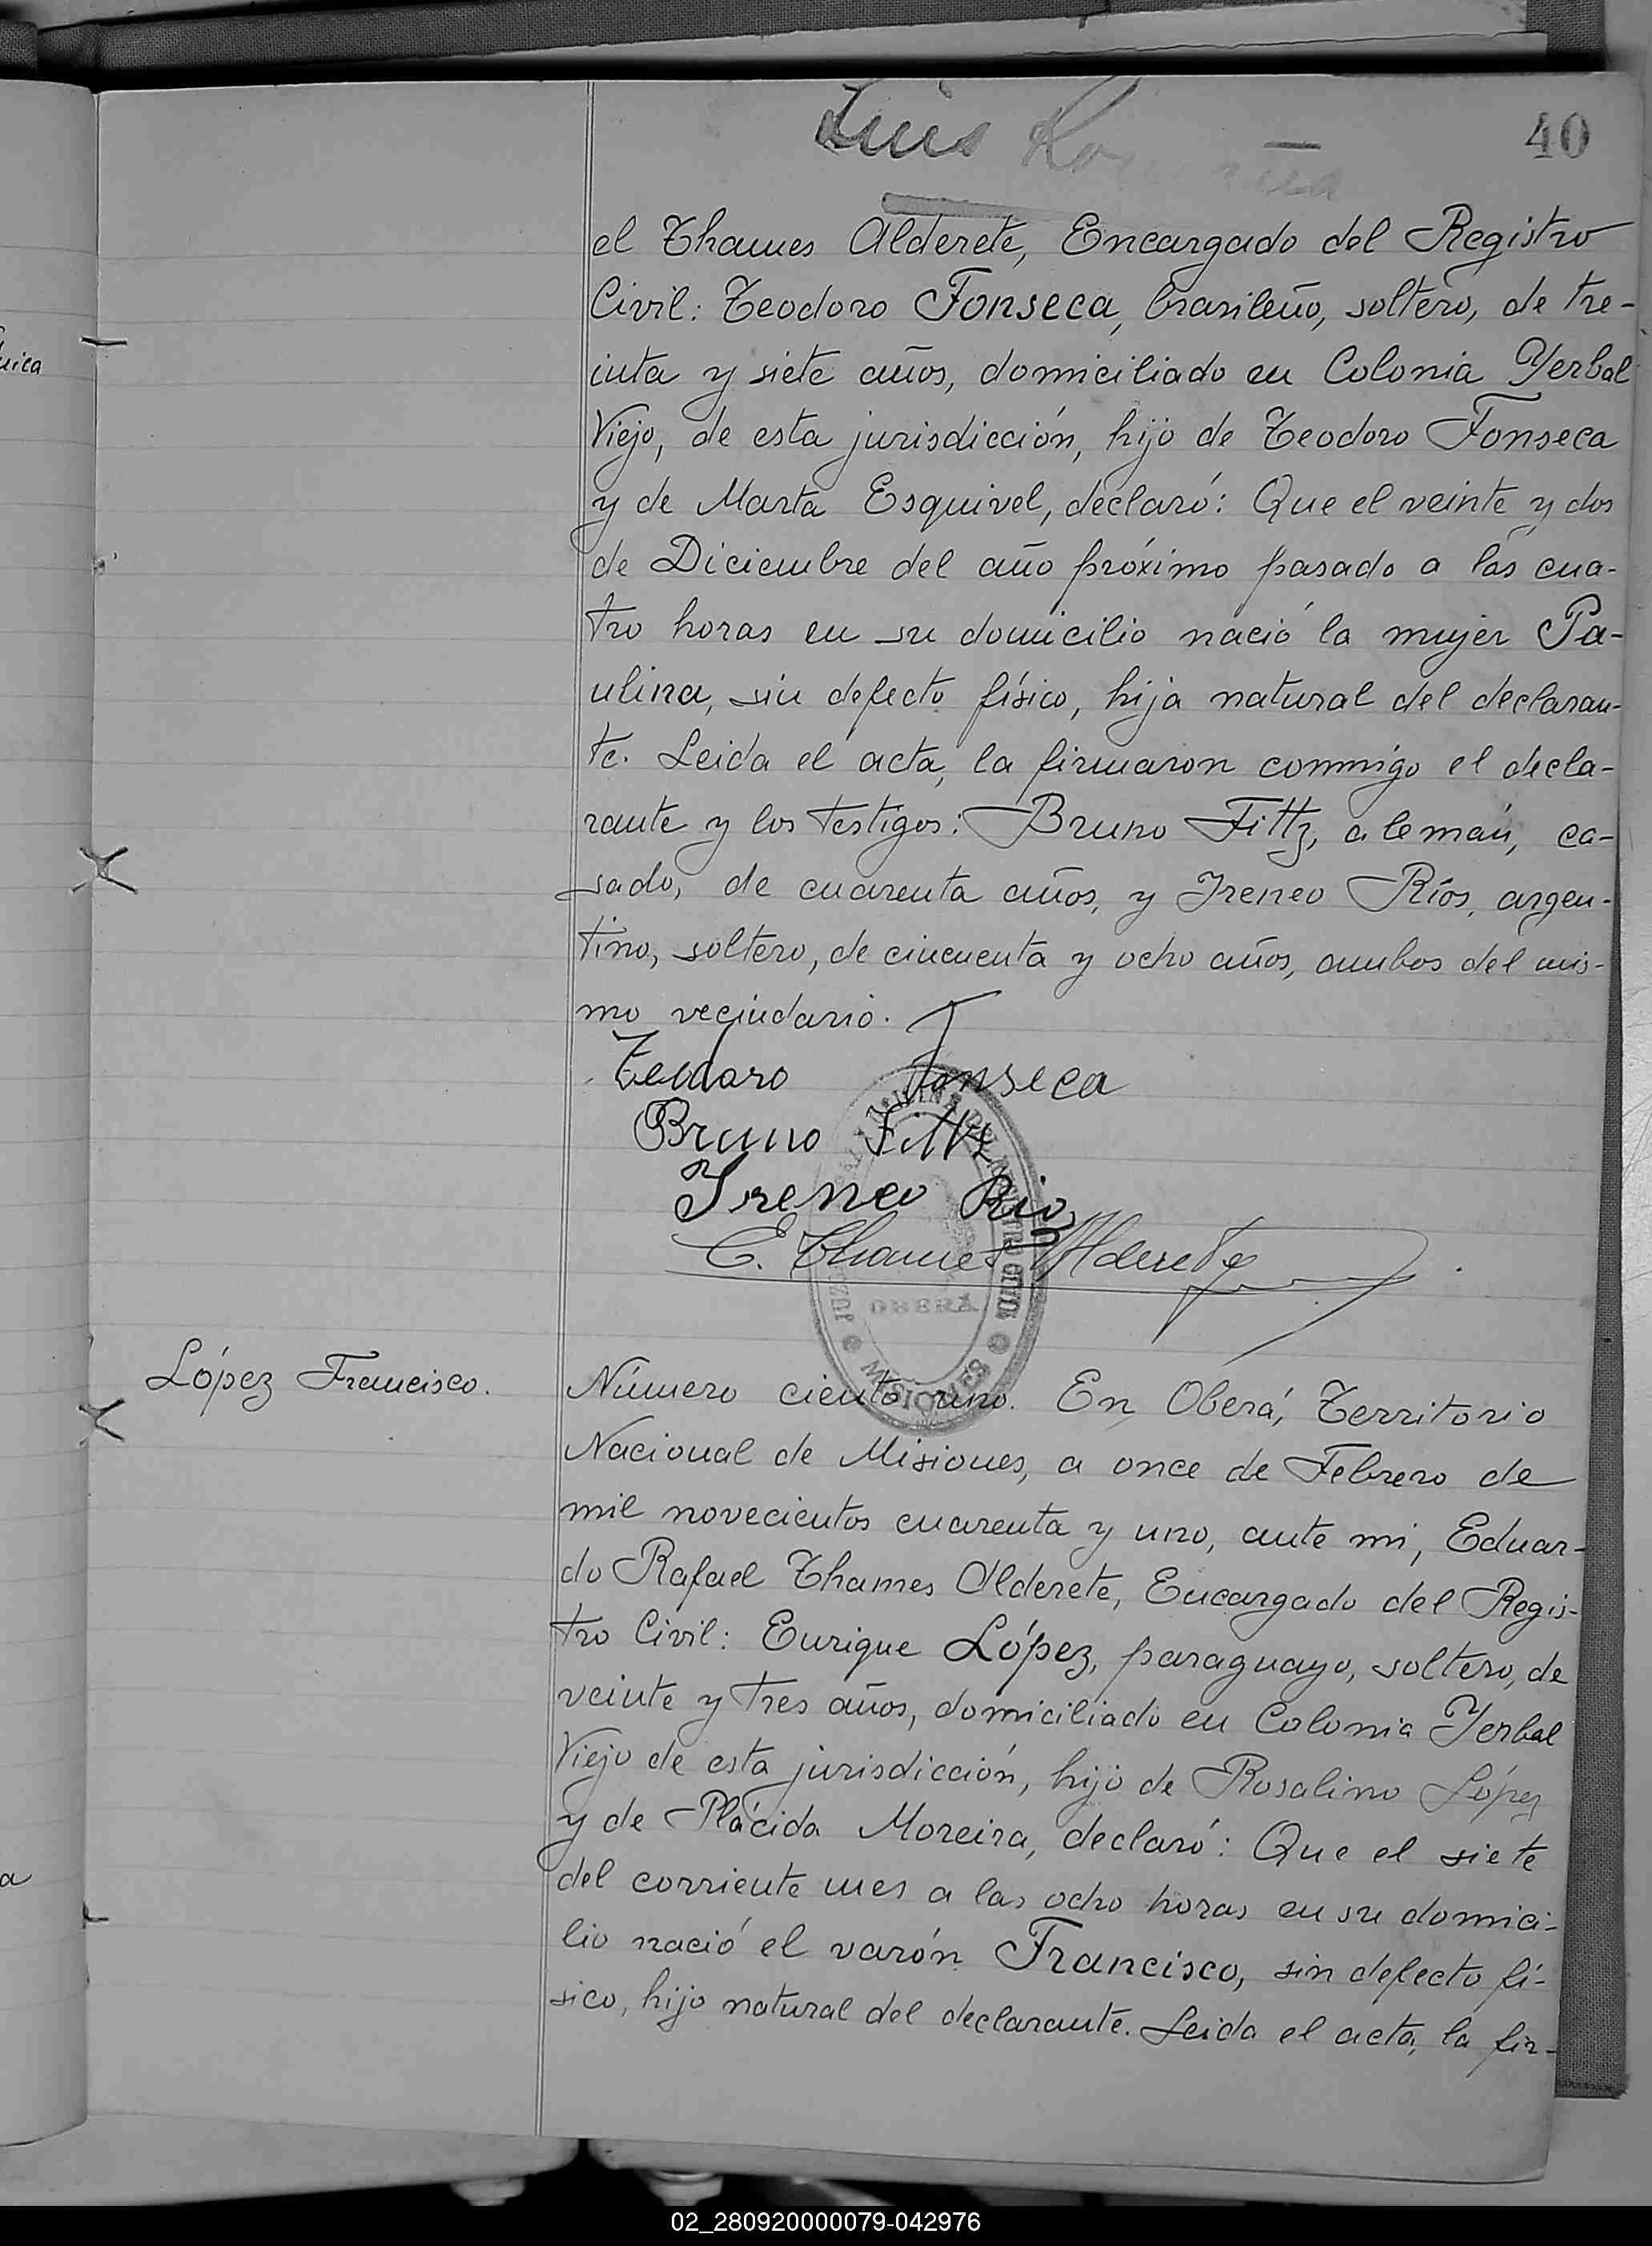 Luis
40
el Thames Alderete, Encargado del Registro
Civil: Teodoro Fonseca, brasileño, soltero, de tre-
inta y siete años, domiciliado en Colonia Yerbal
Viejo, de esta jurisdicción, hijo de Teodoro Fonseca
y de Marta Esquivel, declaró: Que el veinte y dos
de Diciembre del año próximo pasado a las cua-
tro horas en su domicilio nació la mujer Pa-
ulina, sin defecto físico, hija natural del declaran-
te. Leida el acta, la firmaron conmigo el decla-
rante y los testigos: Bruno Fittz, alemán, ca-
sado, de cuarenta años, y Ireneo Ríos, argen-
tino, soltero, de cincuenta y ocho años, ambos del mis-
mo vecindario.
Teodoro Fonseca
Bruno Fittz
Ireneo Rios
E. Thames Alderete
OBERÁ
MISIONES
López Francisco.
Número ciento uno. En Oberá, Territorio
Nacional de Misiones, a once de Febrero de
mil novecientos cuarenta y uno, ante mi, Eduar-
do Rafael Thames Alderete, Encargado del Regis-
tro Civil: Enrique López, paraguayo, soltero, de
veinte y tres años, domiciliado en Colonia Yerbal
Viejo de esta jurisdicción, hijo de Rosalino López
y de Plácida Moreira, declaró: Que el siete
del corriente mes a las ocho horas en su domici-
lio nació el varón Francisco, sin defecto fí-
sico, hijo natural del declarante. Leida el acta, la fir-
02_280920000079-042976